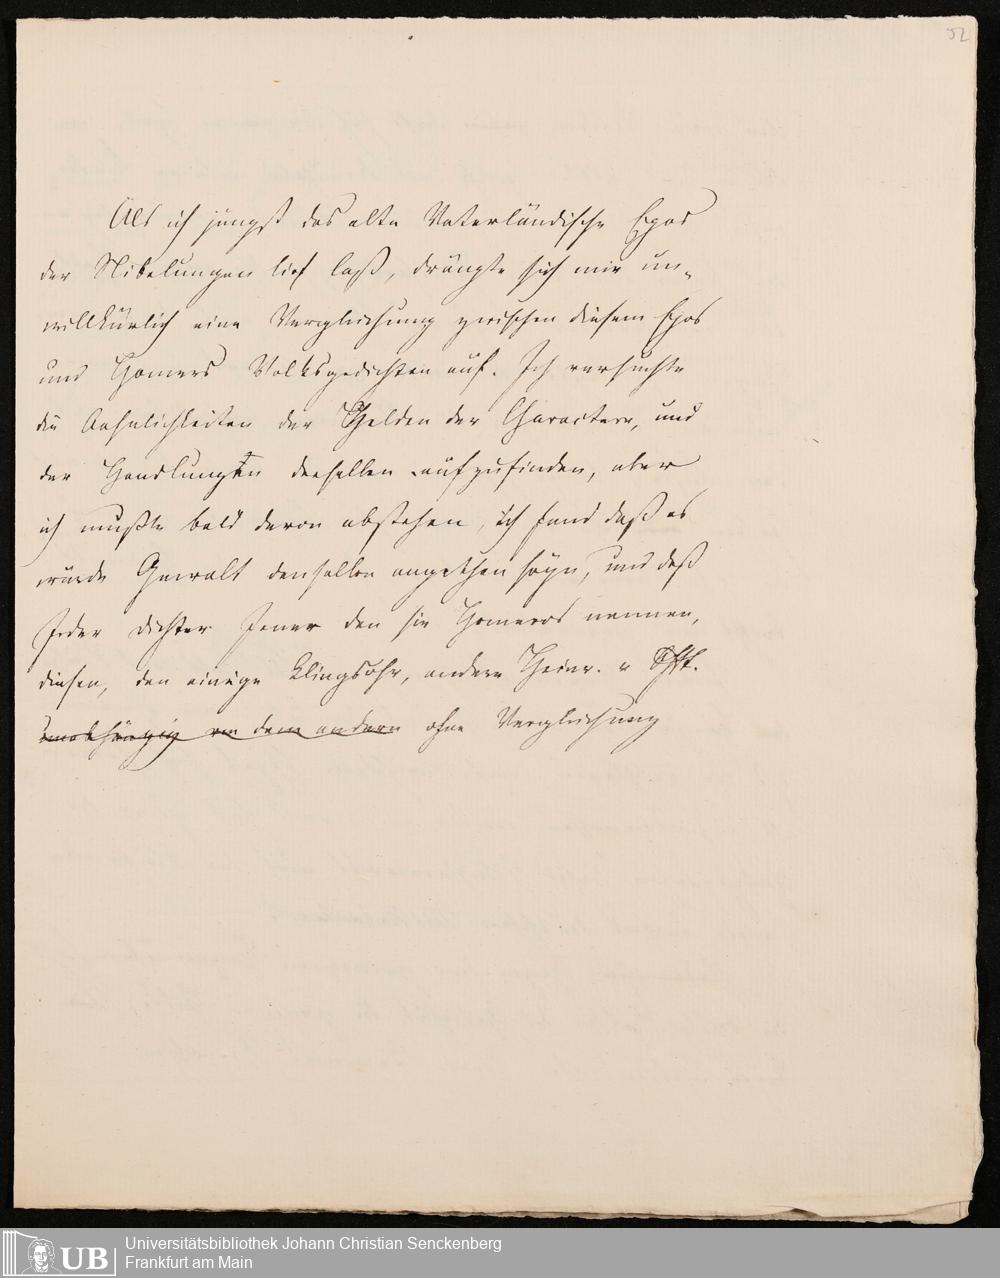 52
Als ich jüngst das alte Vaterländische Epos
der Nibelungen lief laß, drängte sich mir un-
willkürlich eine Vergleichung zwischen diesem Epos
und Homers Volksgedichten auf. Ich versuchte
die Aehnlichkeiten der Helden der Charactere, und
der Handlungen derselben aufzufinden, aber
ich mußte bald davon abstehen, ich fand daß es
würde Gewalt denselben angethan seyn, und daß
Jeder Dichter Jener den sie Homeros nennen,
diesen, den einige Klingsohr, andere Heinr. v
unabhängig von dem andern ohne Vergleichung
UB
Universitätsbibliothek Johann Christian Senckenberg
Frankfurt am Main